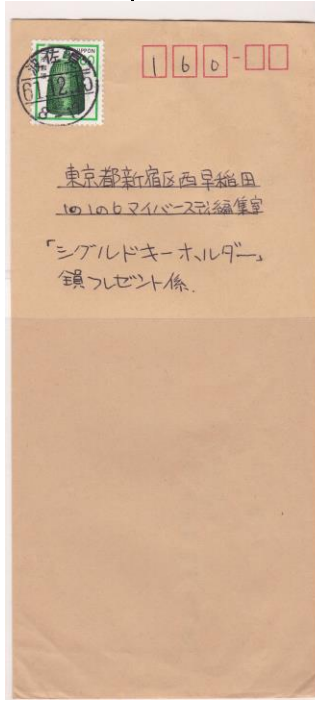 NIPPON
160-
東京都新宿区西早稲田
1の1の6マイバースデイ編集室
「シグルドキーホルダー」
プレゼント係.